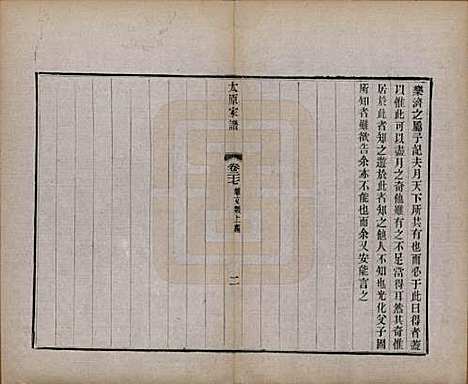 樂濟之屬予記夫月天下所共有也而必于此曰得者蓋
以惟此可以盡月之奇他雖有之不足當得耳然其奇惟
居於此者知之遊於此者知之他人不知也光化父子固
所知者雖欲告余亦不能也而余又安能言之
太原家譜
卷二七
二